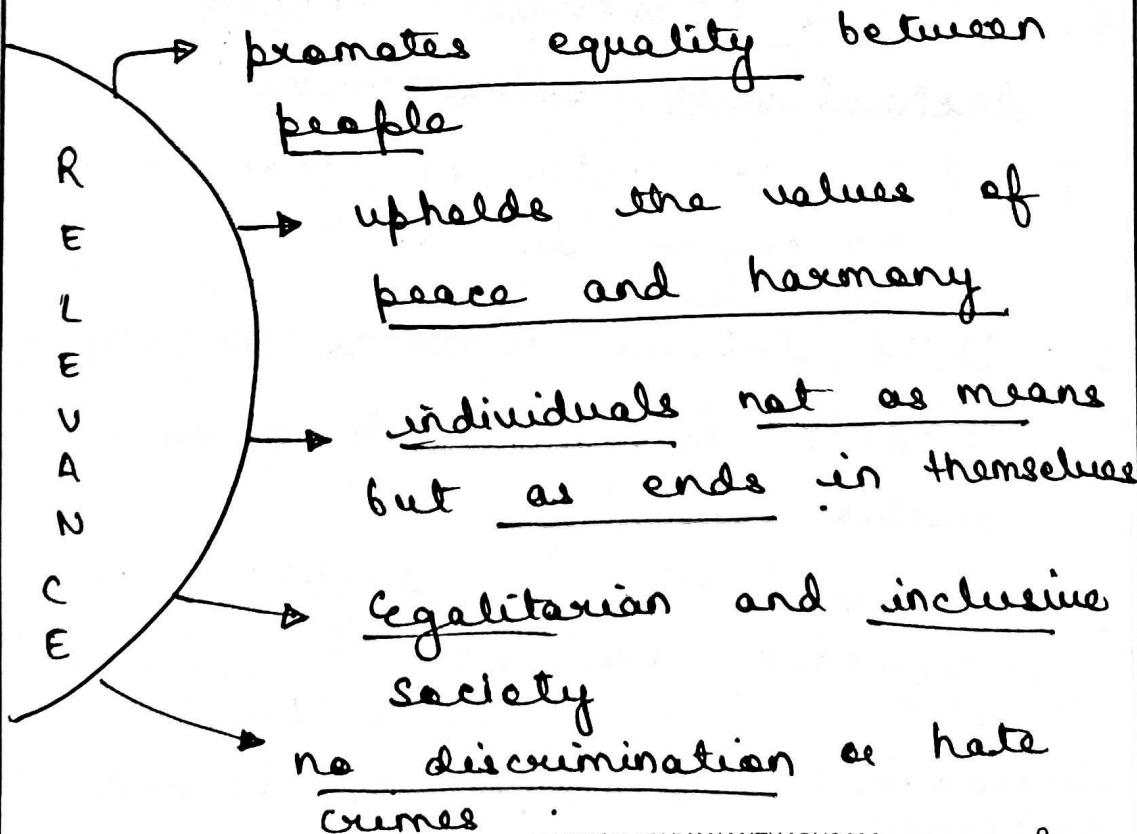 promotes equality between
people
RELEVANCE
upholds the values of
peace and harmony
individuals not as means
but as ends in themselves
egalitarian and inclusive
society
no discrimination or hate
crimes.